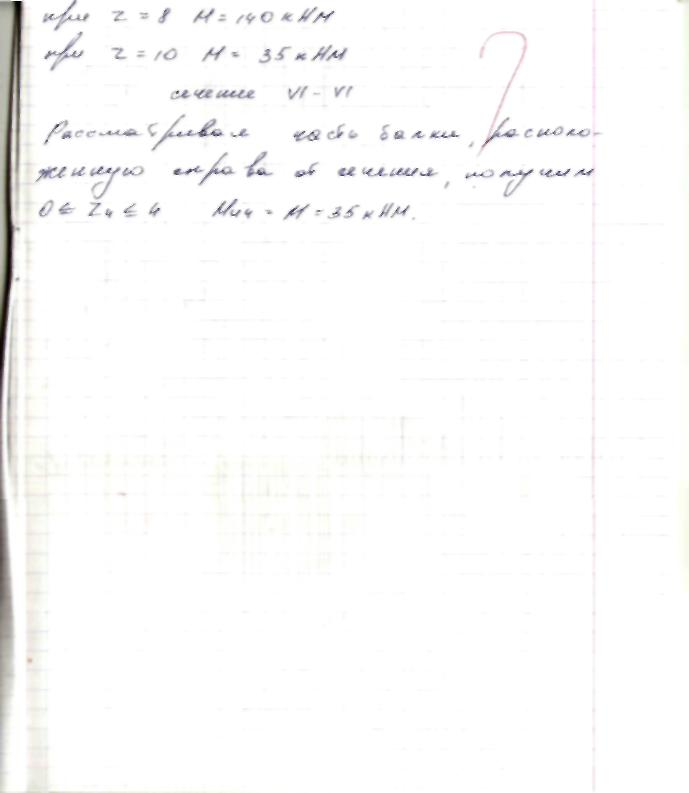 при z = 8 М = 140 кНм
при z = 10 М = 35 кНм
сечение VI - VI
Рассматривая часть балки, располо-
женную справа от сечения, получим
0 ≤ z₄ ≤ 4 Mᵤ₄ = М = 35 кНм.